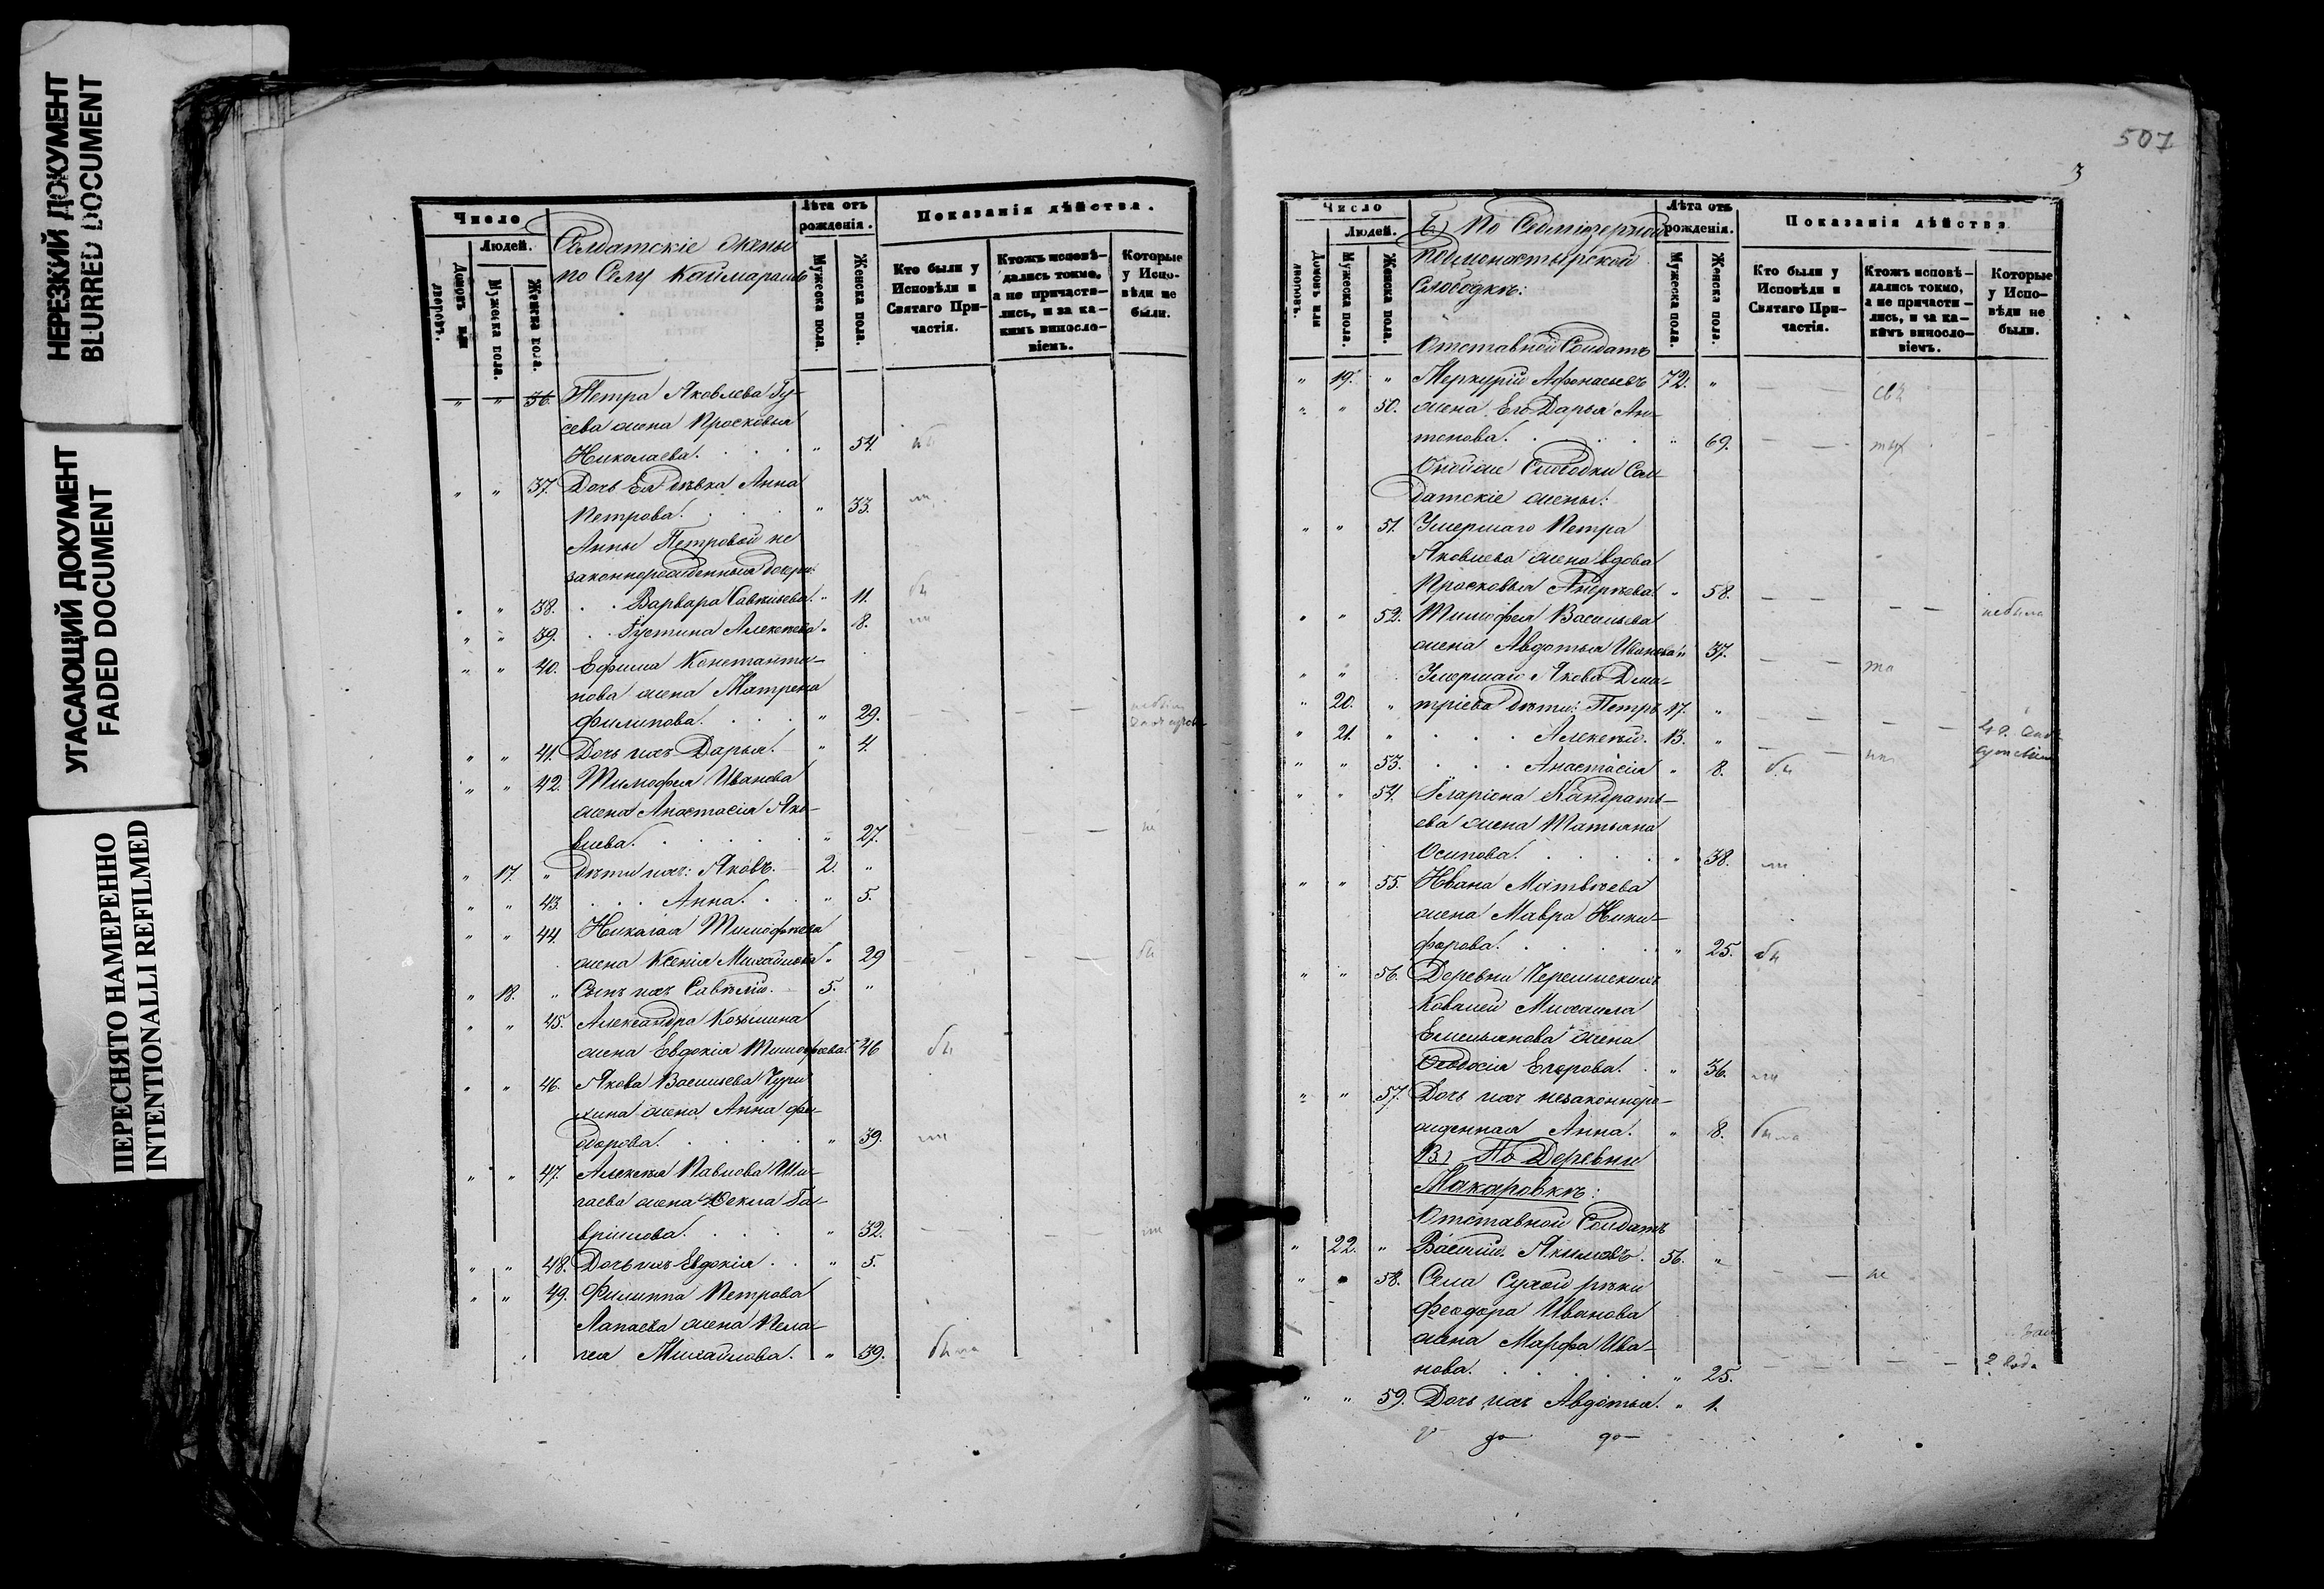 НЕРЕЗКИЙ ДОКУМЕНТ
BLURRED DOCUMENT
УГАСАЮЩИЙ ДОКУМЕНТ
FADED DOCUMENT
ПЕРЕСНЯТО НАМЕРЕННО
INTENTIONALLI REFILMED
Число
Людей.
Домовъ или дворовъ.
Мужеска пола.
Женска пола.
Солдатскіе жены
по Селу Каймарамъ
Лѣта отъ рожденія.
Мужеска пола.
Женска пола.
Показанія дѣйства.
Кто были у Исповѣди и Святаго Причастія.
Ктожъ исповѣ-
дались токмо,
а не причасти-
лись, и за ка-
кимъ винословіемъ.
Которые у Испо-
вѣди не были.
" " 36. Петра Яковлева Гу-
сева жена Просковья
Николаева. " 54.
" " 37. Дочь Ея дѣвка Анна
Петрова. " 33.
Анны Петровой не
законнорожденныя дочери:
" " 38. Варвара Савельева. " 11.
" " 39. Густина Алексѣева " 8.
" " 40. Ефима Константи-
нова жена Матрена
Филипова. " 29.
" " 41. Дочь ихъ Дарья. " 4.
" " 42. Тимофея Иванова
жена Анастасія Яко-
влева. " 27.
" 17. " Дѣти ихъ: Яковъ. 2. "
" " 43. Анна. " 5.
" " 44. Николая Тимофѣева
жена Ксенія Михайлова " 29
" 18. " Сынъ ихъ Савелій. 5. "
" " 45. Александра Козьмина
жена Евдокія Тимофеева. " 46
" " 46. Якова Васильева Чури
хина жена Анна Фе-
одорова. " 39.
" " 47. Алексѣя Павлова
жена Ѳекла Га-
врилова. " 32.
" " 48. Дочь ихъ Евдокія " 5.
" " 49. Филиппа Петрова
Лапаева жена Пела-
гея Михайлова. " 39. была
507
3
Число
Людей.
Домовъ или дворовъ.
Мужеска пола.
Женска пола.
Б) По Седміозерной
Подмонастырской
Слободкѣ:
Лѣта отъ рожденія.
Мужеска пола.
Женска пола.
Показанія дѣйства
Кто были у Исповѣди и Святаго Причастія.
Ктожъ исповѣ-
дались токмо,
а не причасти-
лись, и за ка-
кимъ винословіемъ.
Которые у Испо-
вѣди не были.
Отставной Солдатъ
" 19. " Меркурій Афонасьевъ 72. "
" " 50. жена Его Дарья Ан-
тонова. " 69.
Оной же Слободки Сол-
датскіе жены:
" " 51. Умершаго Петра
Яковлева жена вдова
Просковья Андреева. " 58. небыла
" " 52. Тимофея Васильева
жена Авдотья Иванова " 37.
" " Умершаго Якова Дми-
" 20. " тріева дѣти: Петръ 17. "
" 21. " Алексѣй. 13. "
" " 53. Анастасія " 8.
" " 54. Иларіона Кандрать-
ева жена Татьяна
Осипова. " 38.
" " 55. Ивана Матвѣева
жена Мавра Ники-
форова. " 25.
" " 56. Деревни Черемискихъ
Ковалей Михаила
Емельянова жена
Ѳеодосія Егорова. " 36.
" " 57. Дочь ихъ незаконноро-
жденная Анна. " 8. была
В) По Деревни
Макаровкѣ:
Отставной Солдатъ
" 22. " Василій Якимовъ. 56. "
" " 58. Села Сухой рѣки
Феодора Иванова
жена Марфа Ива-
нова. " 25. 2 года
" " 59. Дочь ихъ Авдотья. " 1.